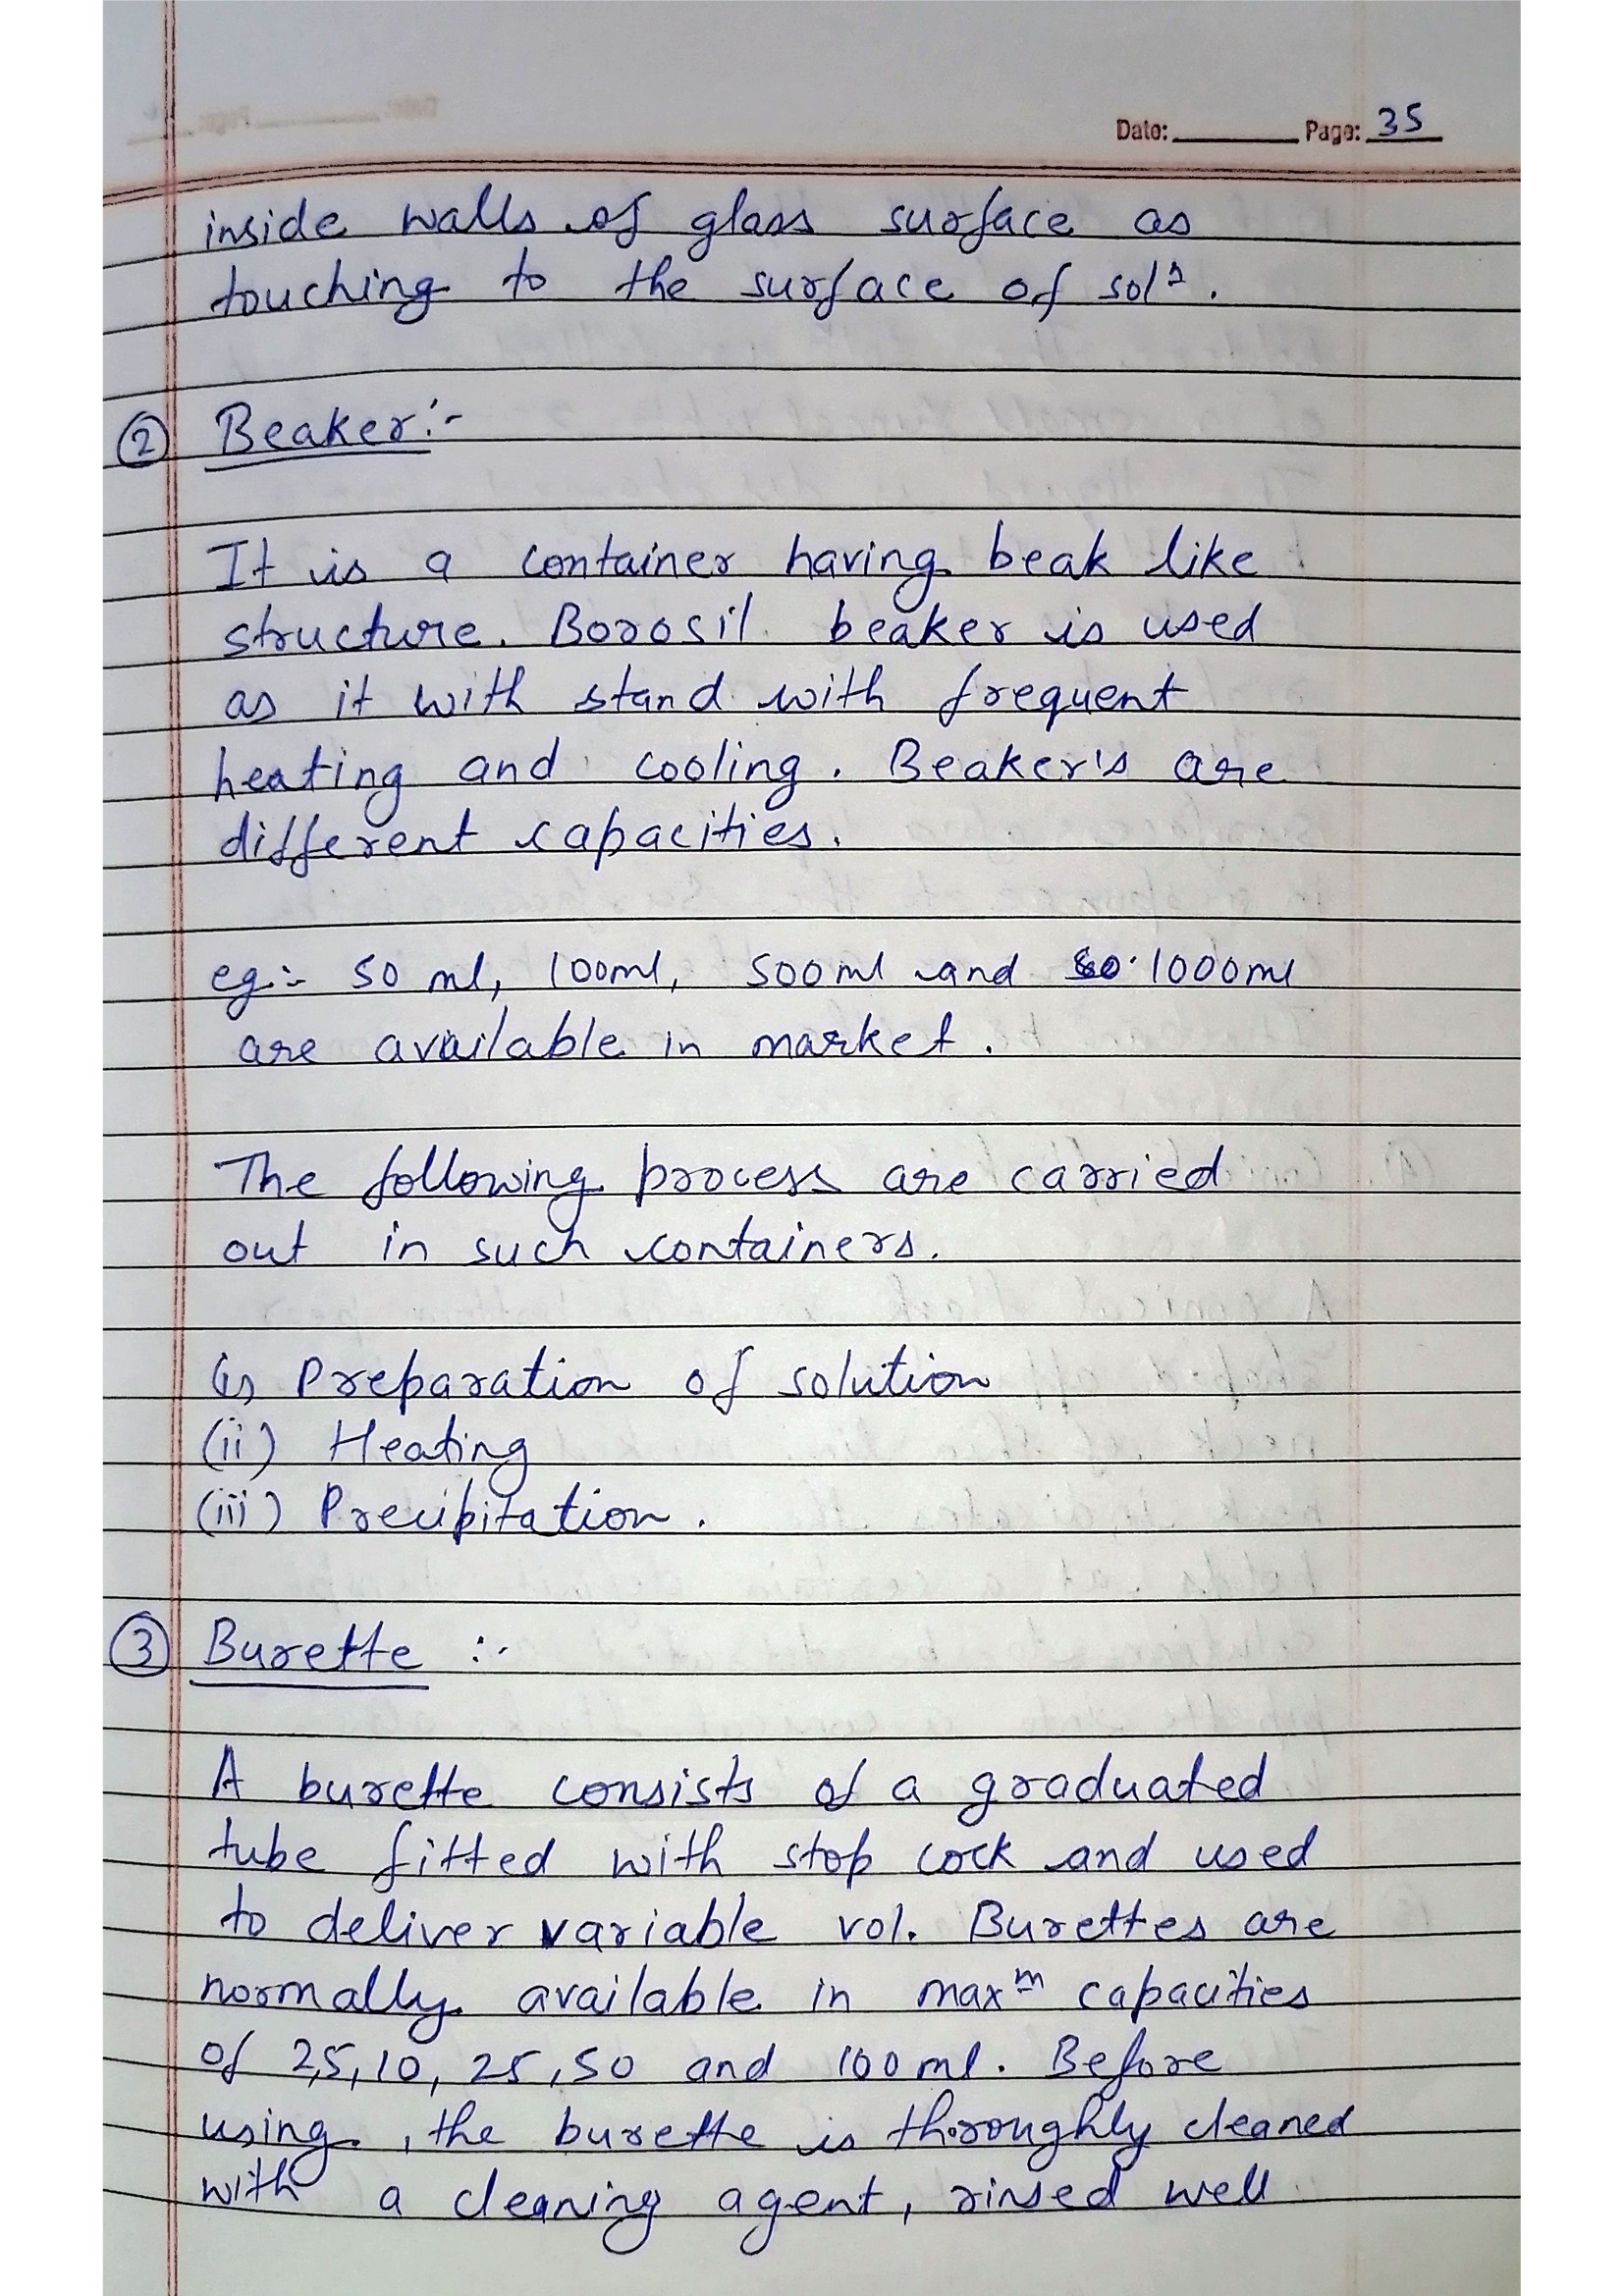 Date: ________ Page: 35
inside walls of glass surface as
touching to the surface of solⁿ.
② Beaker:-
It is a container having beak like
structure. Borosil beaker is used
as it with stand with frequent
heating and cooling. Beaker's are
different capacities.
eg:- 50 ml, 100ml, 500ml and 1000ml
are available in market.
The following process are carried
out in such containers.
(i) Preparation of solution
(ii) Heating
(iii) Precipitation.
③ Burette :-
A burette consists of a graduated
tube fitted with stop cock and used
to deliver variable vol. Burettes are
normally available in maxᵐ capacities
of 2,5,10, 25,50 and 100 ml. Before
using, the burette is thoroughly cleaned
with a cleaning agent, rinsed well